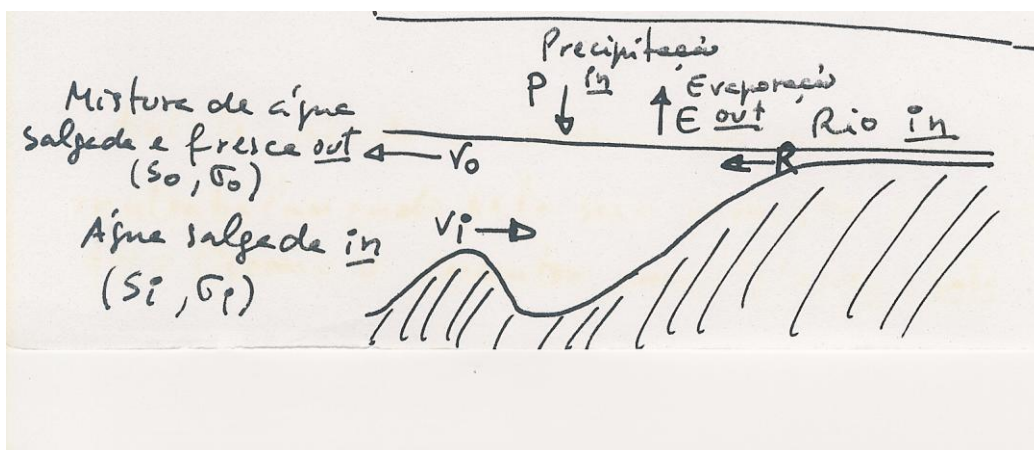 Precipitação
P in
Evaporação
E out
Rio in
Mistura de água
salgada e fresca out
(So, σo)
Vo
R
Água salgada in
(Si, σi)
Vi